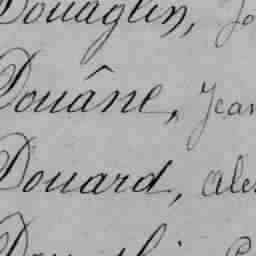 Douaglin, Jo
Douâne, Jean
Douard, Ale